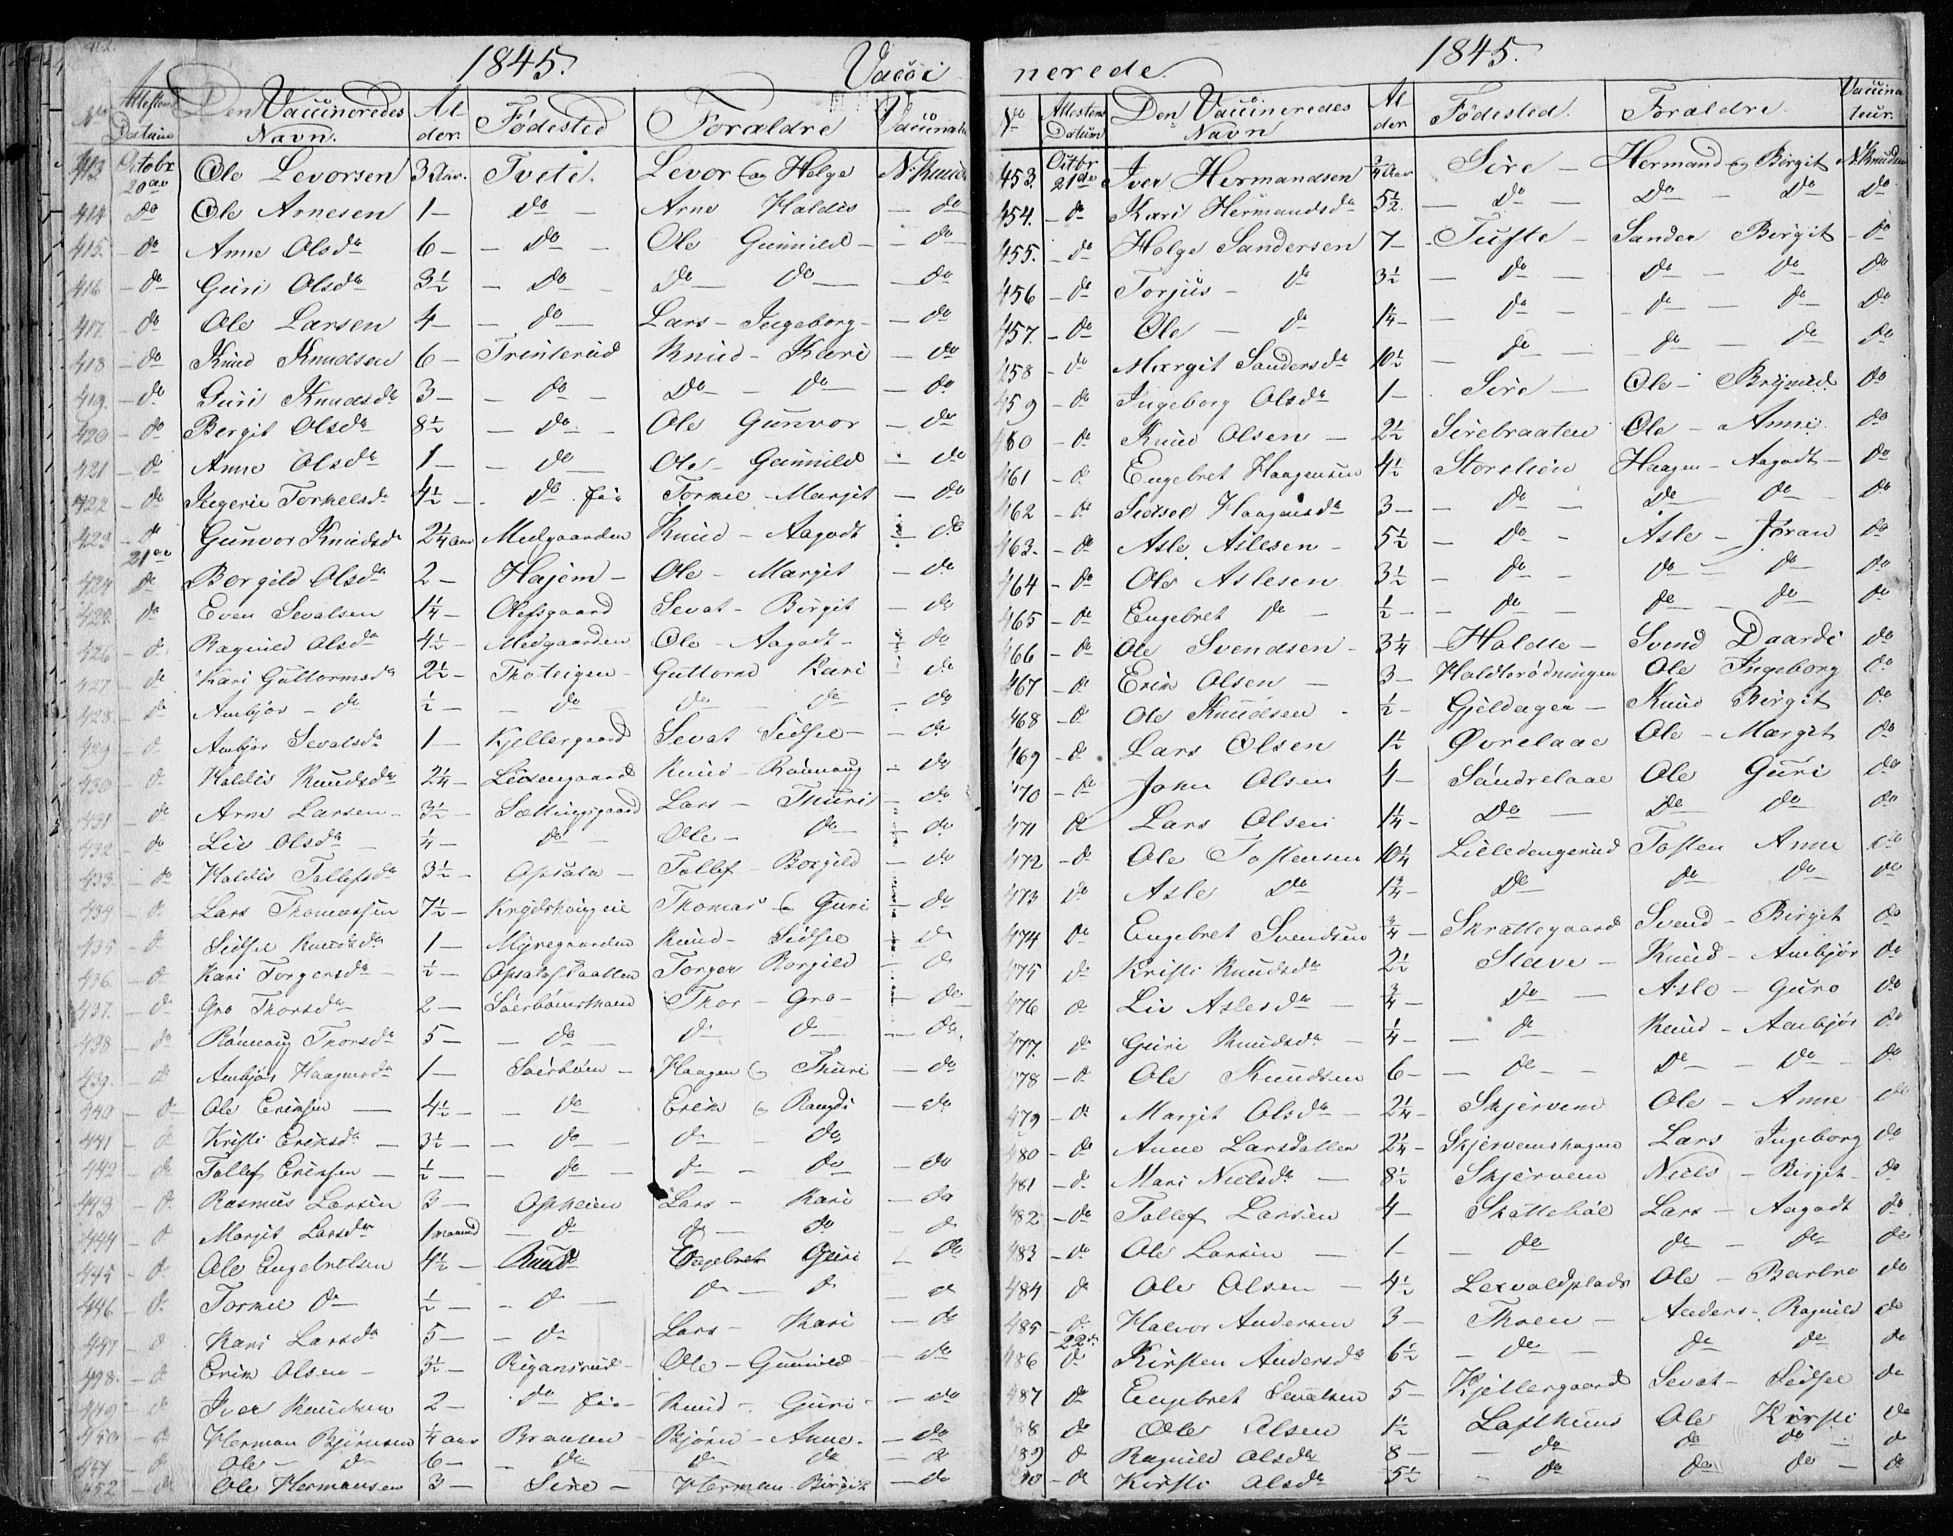 1845. Vacci
No Attestens Datum Den Vaccineredes Navn. Alder. Fødested Forældre Vaccinatur
413 Octobr 20de Ole Levorsen 3 Aar. Tveto. Levor og Helge N. Knuds
414 do Ole Arnesen 1 — do — Arne Haldis — do
415. — do Anne Olsdr 6 — — do — Ole Gunnild — — do
416 — do Guri Olsdr 3½ — do — do — do — — do
417. — do Ole Larsen 4 — — do — Lars — Ingeborg — — do
418 — do Knud Knudsen 6 — Trinterud Knud — Kari — do
419. — do Guri Knudsdr 3 — — do — do — do — — do
420 — do Bergit Olsdr 8½ — do — Ole Gunvor — do
421 — do Anne Olsdr 1 — — do — Ole — Gunnild — do
422 — do Ingerie Tormelsdr 4½ — do Torme — Margit — do
423 — do Gunvor Knudsdr 2¼ Aar Medgaarden Knud — Aagodt — do
21de
424 do Borgild Olsdr 2 — Hajem — Ole — Margit — do
425. do Even Sevalsen 1¼ — Olefsgaard Sevat — Birgit — do
426 — do Ragnild Olsdr 4½ — Medgaarden Ole — Aagodt — do
427 — do Kari Guttormsdr 2½ — Thoteigen — Guttorm Kari do
428. — do Ambjør — do ½ — — do do — do — do
429 — do Ambjør Sevatsdr 1 — Kjellergaard Sevat Sidsel — — do
430 — do Haldis Knudsdr 2¼ — Knud — Rønnaug — do
431 — do Arne Larsen — 3½ — Sættingsgaard Lars — Thuri — do
432 — do Liv Olsdr ¼ — do — Ole — do — do
433. — do Haldis Tollefsdr 3½ — Opsala — Tollef — Borgild — do
434 — do Lars Thomassen 7½ — Thomas og Guri — do
435 — do Sidsel Knudsdr 1 — Myregaarden Knud — Sidsel do
436. — do Kari Torgersdr — ½ — Torger Borgild — do
437. — do Gro Thorsdr 2 — Thor — Gro — — do
438 — do Rønnaug Thorsdr 5 — — do do do — do
439. — do Ambjør Haagensdr 1 — Sørbøen — Haagen og Thuri — do
440 — do Ole Eriksen — 4½ — — do Erik og Rangdi — do
441 — do Kristi Eriksdr — 3½ — — do — do — do
442 — do Tollef Eriksen — ½ — — do — do — do — do
443 — do Rasmus Larsen 3 — Opheim Lars — Kari — do
444 — do Margit Larsdr 1 maaned — do do — do — do
445 — do Ole Engebretsen 4½ — Ruud Engebret Guri — do
446 — do Torme do — ½ — — do — do — do — do
447 — do Kari Larsdr 5 — — do Lars — Kari — do
448. — do Erik Olsen — 3½ — Rigansrud — Ole — Gunnild — do
449 — do Iver Knudsen 2 — do Knud — Guri — — do
450 — do Herman Bjørnsen ¼ Aar Braaten — Bjørn — Anne. — do
451 — do Ole — do 6 — — do do do — do
452 — do Ole Hermansen 3 — Sire — Herman Birgit — do
nerede. 1845.
No Attestens Datum Den Vaccineredes Navn Alder Fødested. Forældre. Vaccinateur.
453. Octbr 21de Iver Hermandsen ¾ Aar Sire — Hermand og Birgit N. Knudsen
454. — do Kari Hermandsdr 5½. — do — do — do do
455. — do Helge Sandersen 7 — Tufte — Sander Birgit — do
456 — do Torjus — do 3½ — do — do — do do
457. — do Ole — do 1¼ — — do — do — do do
458 — do Margit Sandersdr 10½ — do — do — do do
459 — do Ingeborg Olsdr 1 — Sire — Ole — Brynild do
460 — do Knud Olsen — 2½ Sirebraaten Ole — Anne do
461 — do Engebret Haagensen 4½ Storslien Haagen — Aagodt — do
462 — do Sidsel Haagensdr 3 — — do — do — do — do
463. — do Asle Aslesen — 5½ — do — Asle — Jøran do
464 — do Ole Aslesen 3½ — do — do — do — do
465 — do Engebret do — ½ — — do — do — do — do
466 — do Ole Svendsen — 3¼ Holdte — Svend Daardi do
467 — do Erik Olsen — 3 — Holdtorødningen Ole Ingeborg do
468 — do Ole Knudsen — ½ — Gjeldager — Knud Birgit do
469 — do Lars Olsen 1½ Øvrelaae Ole — Margit do
470 — do John Olsen 4 — Søndrelaae Ole Guri do
471 do Lars Olsen 1¼ — do — do do do
472 — do Ole Tostensen 10¼ Lilledengerud Tosten Anne do
473 do Asle do 1¾ — do do do do
474 do Engebret Svendsen ¾ — Skrattegaard Svend — Birgit do
475 do Kristi Knudsdr 2½ Stave — Knud — Ambjør do
476 do Liv Aslesdr — ¾ — do — Asle — Guro do
477. — do Guri Knudsdr — ¼ — — do Knud — Ambjør do
478 — do Ole Knudsen 6 — — do — do — do — do
479 — do Margit Olsdr — 2¼ — Skjervem Ole — Anne do
480 — do Anne Larsdatter 2¼ — Skjervemshagen Lars Ingeborg do
481 — do Mari Nielsdr — 8½ Skjervem Niels — Birgit — do
482 — do Tollef Larsen 4 — Skattebøl Lars — Aagodt do
483 — do Ole Larsen — 1 — — do do — do — do
484 do Ole Olsen — 4½ Lexvoldplads Ole — Barbro do
485 — do Halvor Andersen 3 — Thoen — Anders — Ragnild do
22de
486 do Kirsten Andersdr 6½ — do — do do do
487 do Engebret Sevatsen 5 — Kjellergaard Sevat — Sidsel do
488 do Ole Olsen 1½ Lofthuus Ole Kirsti do
489 do Ragnild Olsdr 8 — — do do do — do
490 — do Kirsti Olsdr 5½ — do do do — do